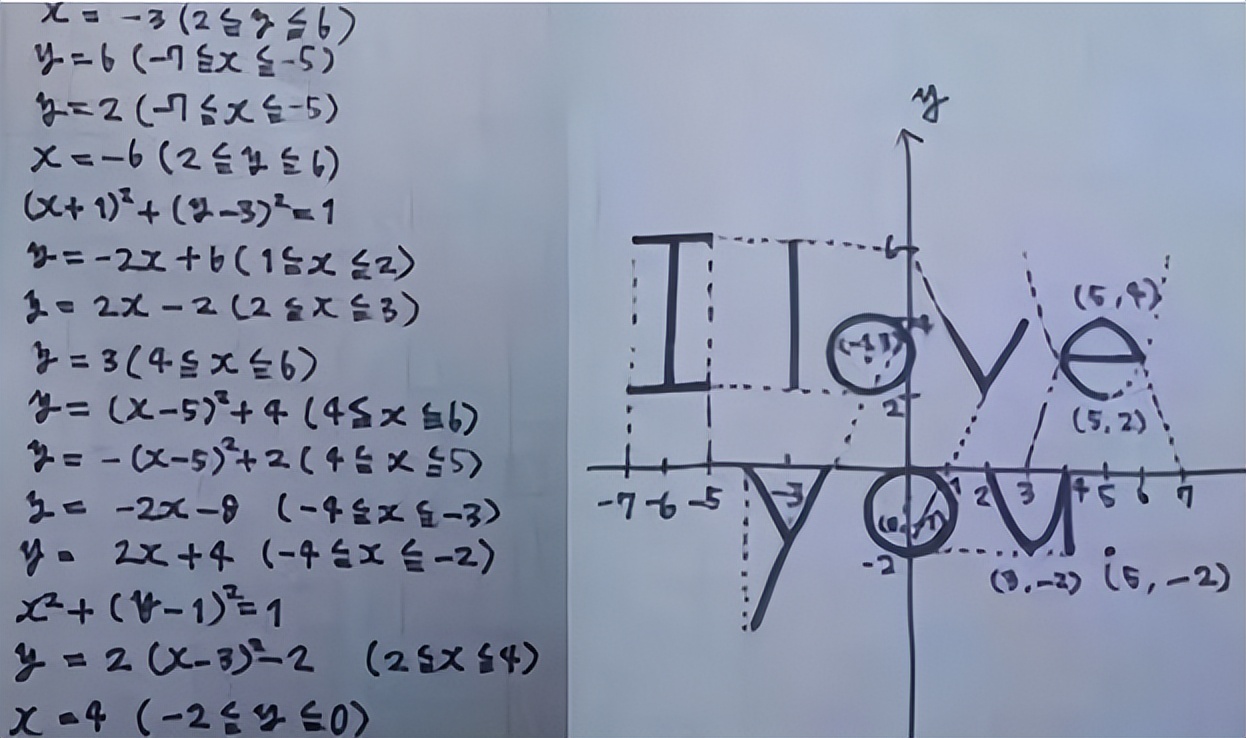 x = -3 (2 ≦ y ≦ 6)
y = 6 (-7 ≦ x ≦ -5)
y = 2 (-7 ≦ x ≦ -5)
x = -6 (2 ≦ y ≦ 6)
(x+1)² + (y-3)² = 1
y = -2x + 6 (1 ≦ x ≦ 2)
y = 2x - 2 (2 ≦ x ≦ 3)
y = 3 (4 ≦ x ≦ 6)
y = (x-5)² + 4 (4 ≦ x ≦ 6)
y = -(x-5)² + 2 (4 ≦ x ≦ 5)
y = -2x - 8 (-4 ≦ x ≦ -3)
y = 2x + 4 (-4 ≦ x ≦ -2)
x² + (y-1)² = 1
y = 2 (x-3)² - 2 (2 ≦ x ≦ 4)
x = 4 (-2 ≦ y ≦ 0)
y
6
I love
(5, 4)
4
(-1, 3)
2
(5, 2)
-7 -6 -5 -3 1 2 3 4 5 6 7
you
(0, -1)
-2
(3, -2) i (5, -2)